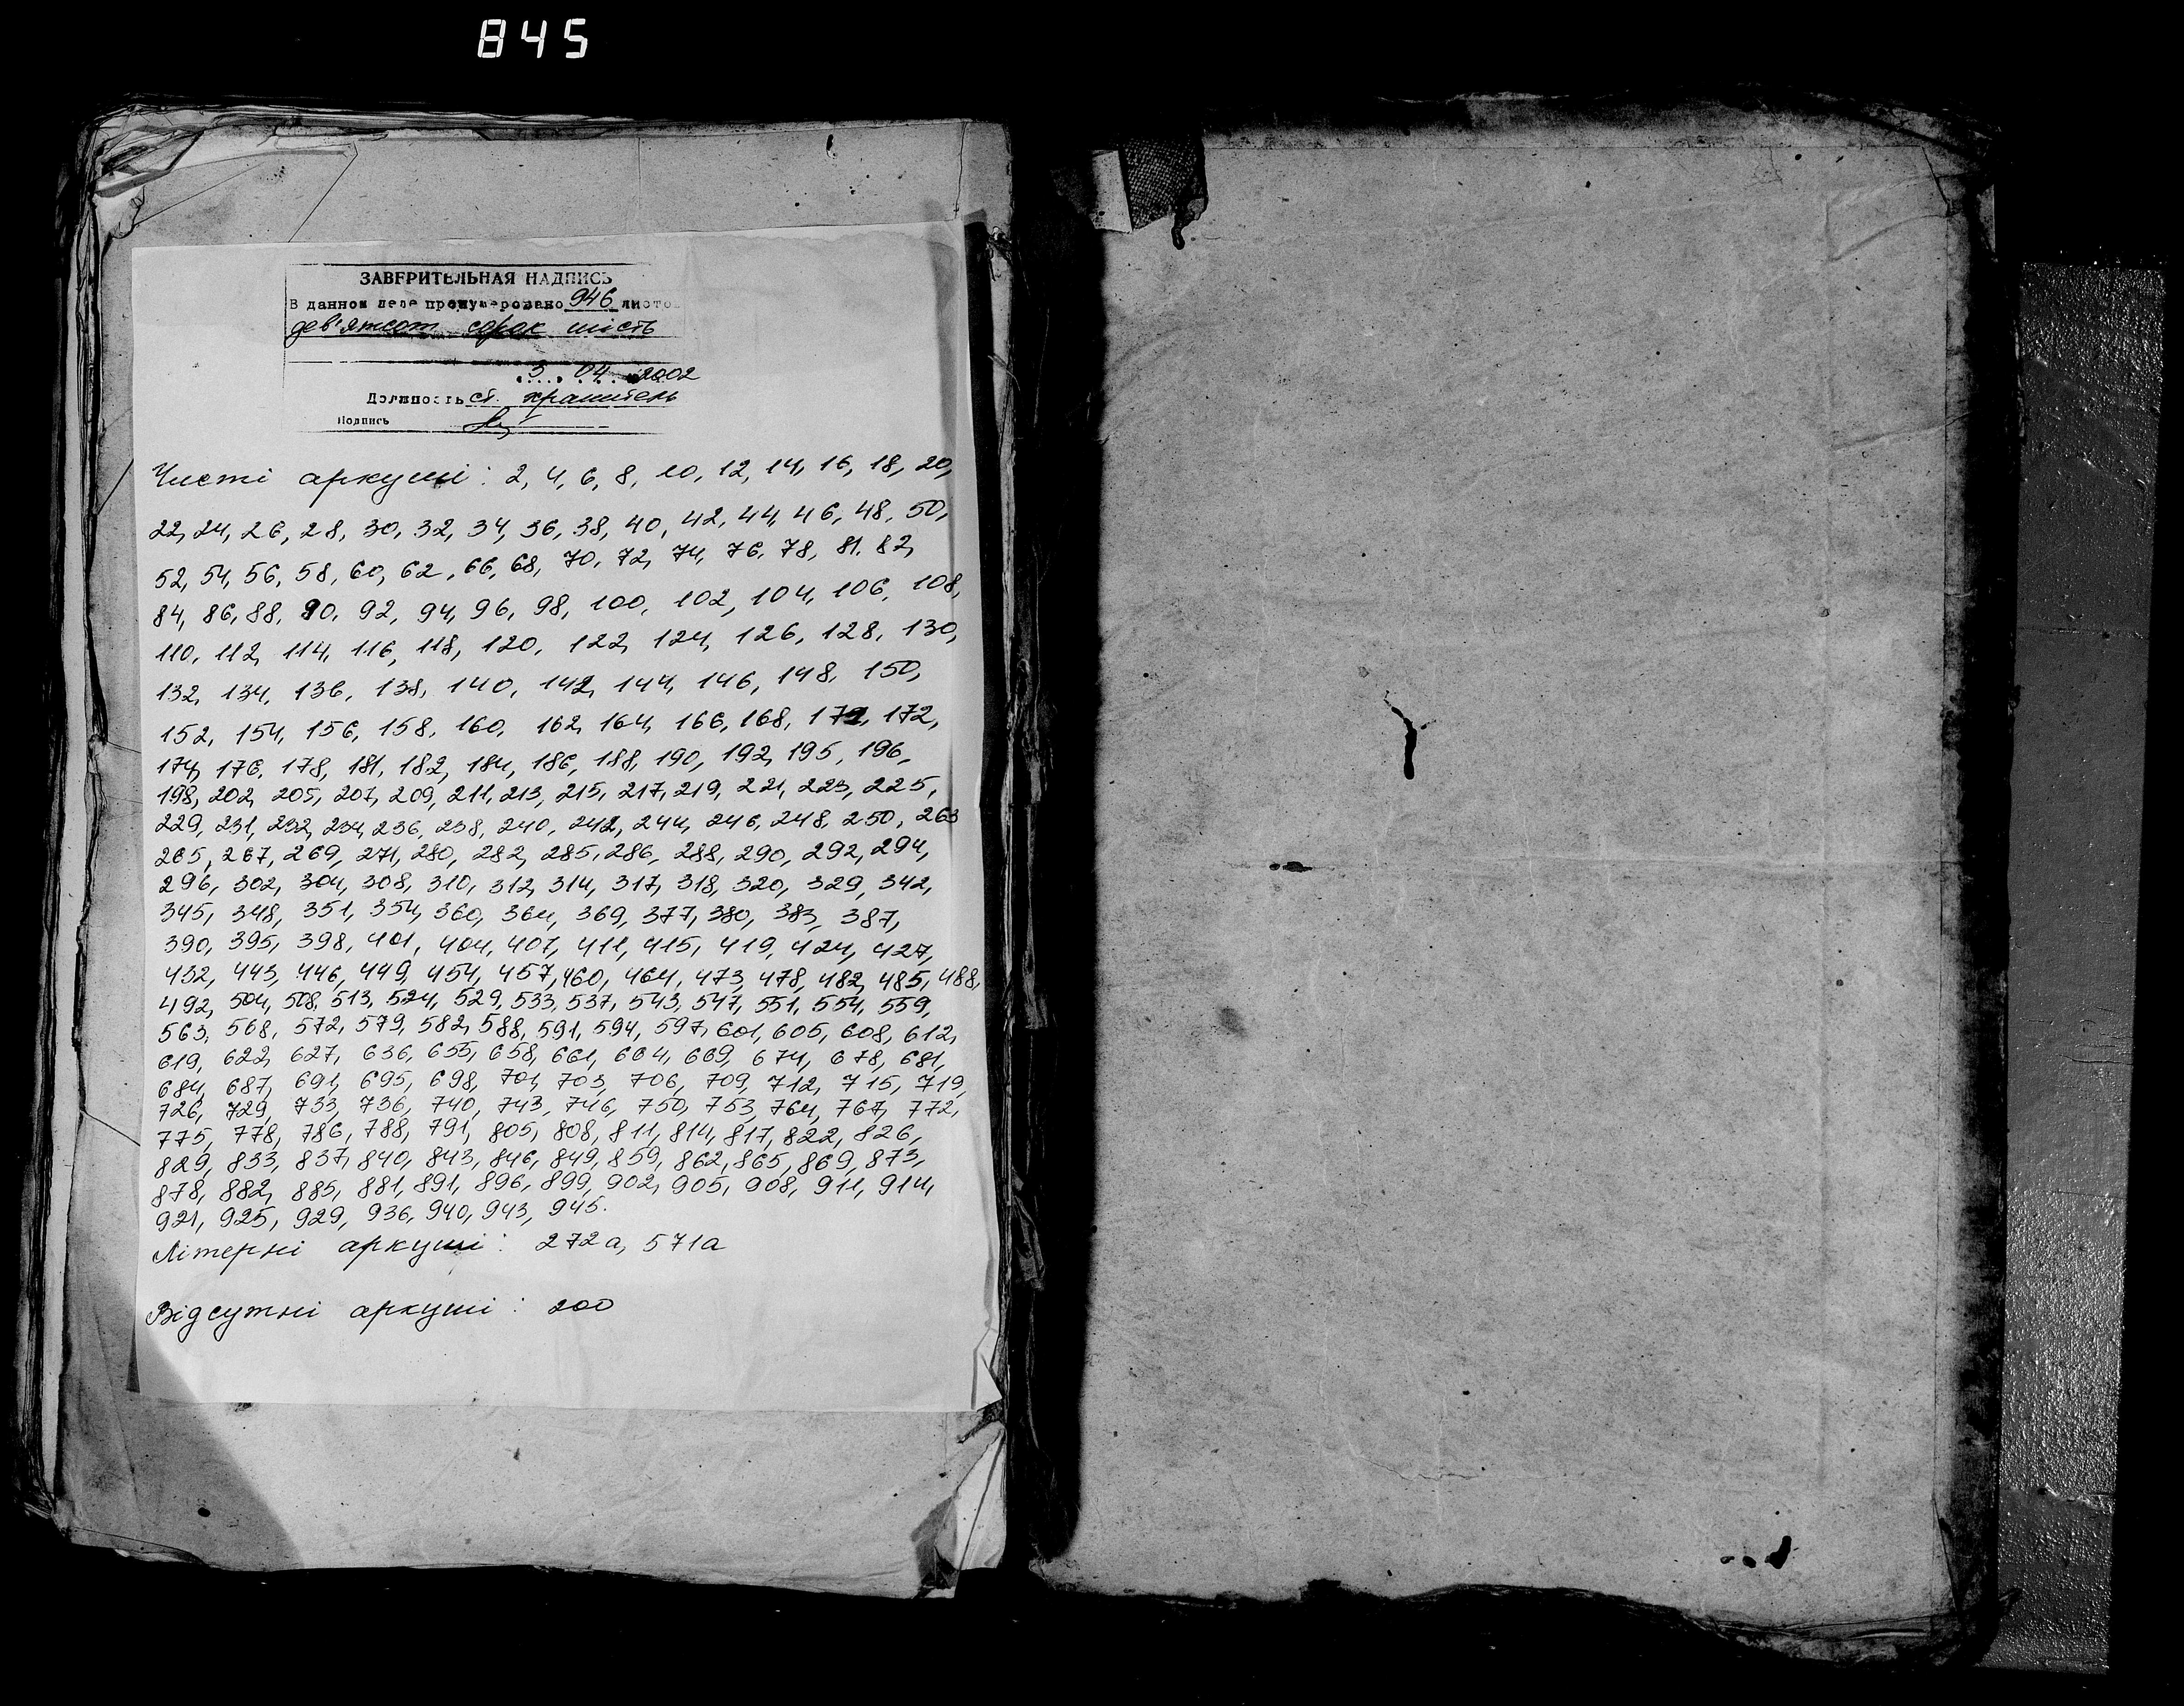 845
ЗАВЕРИТЕЛЬНАЯ НАДПИСЬ
В данном деле пронумеровано 946 листо
дев'ятсот сорок шість
3 04 2002
Должность ст. хранитель
Подпись
Чисті аркуші: 2, 4, 6, 8, 10, 12, 14, 16, 18, 20,
22, 24, 26, 28, 30, 32, 34, 36, 38, 40, 42, 44, 46, 48, 50,
52, 54, 56, 58, 60, 62, 66, 68, 70, 72, 74, 76, 78, 81, 82,
84, 86, 88, 90, 92, 94, 96, 98, 100, 102, 104, 106, 108,
110, 112, 114, 116, 118, 120, 122, 124, 126, 128, 130,
132, 134, 136, 138, 140, 142, 144, 146, 148, 150,
152, 154, 156, 158, 160, 162, 164, 166, 168, 172,
174, 176, 178, 181, 182, 184, 186, 188, 190, 192, 195, 196,
198, 202, 205, 207, 209, 211, 213, 215, 217, 219, 221, 223, 225,
229, 231, 232, 234, 236, 238, 240, 242, 244, 246, 248, 250, 263
265, 267, 269, 271, 280, 282, 285, 286, 288, 290, 292, 294,
296, 302, 304, 308, 310, 312, 314, 317, 318, 320, 329, 342,
345, 348, 351, 354, 360, 364, 369, 377, 380, 383, 387,
390, 395, 398, 401, 404, 407, 411, 415, 419, 424, 427,
432, 443, 446, 449, 454, 457, 460, 464, 473, 478, 482, 485, 488,
492, 504, 508, 513, 524, 529, 533, 537, 543, 547, 551, 554, 559,
563, 568, 572, 579, 582, 588, 591, 594, 597, 601, 605, 608, 612,
619, 622, 627, 636, 655, 658, 661, 664, 669, 674, 678, 681,
684, 687, 691, 695, 698, 701, 703, 706, 709, 712, 715, 719,
726, 729, 733, 736, 740, 743, 746, 750, 753, 764, 767, 772,
775, 778, 786, 788, 791, 805, 808, 811, 814, 817, 822, 826,
829, 833, 837, 840, 843, 846, 849, 859, 862, 865, 869, 873,
878, 882, 885, 881, 891, 896, 899, 902, 905, 908, 911, 914,
921, 925, 929, 936, 940, 943, 945.
Літерні аркуші: 272а, 571а
Відсутні аркуші: 200